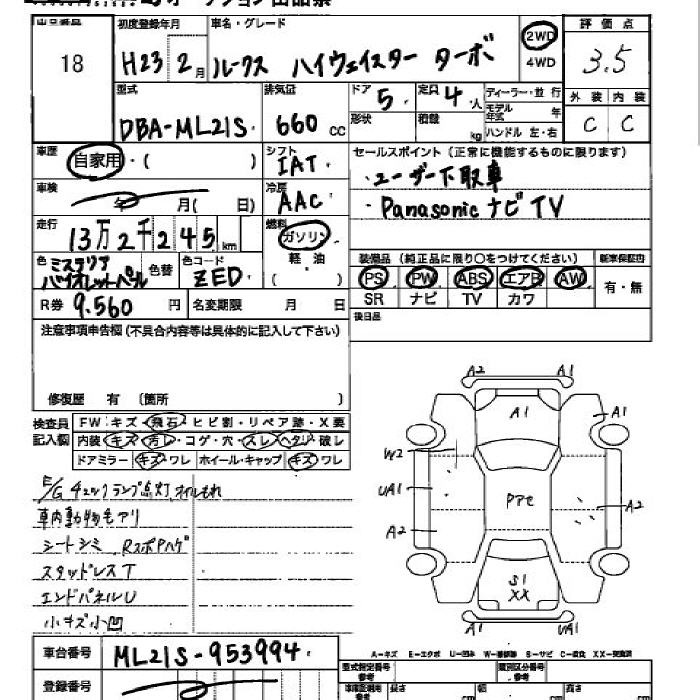 オークション出品票
出品番号 18
初度登録年月 H23 2月
車名・グレード ルークス ハイウェイスター ターボ
2WD
4WD
評価点 3.5
外装 内装
C C
型式 DBA-ML21S
排気量 660 cc
ドア 5
形状
定員 4人
積載 kg
ディーラー・並行
モデル年式 年
ハンドル 左・右
車歴 自家用・( )
シフト IAT
セールスポイント (正常に機能するものに限ります)
・ユーザー下取車
・Panasonic ナビ TV
車検 年 月( 日)
冷房 AAC
走行 13万2千245km
燃料 ガソリン
軽油
色 ミステリアバイオレットパール
色替
色コード ZED
装備品 (純正品に限り○をつけてください)
新車保証書
PS PW ABS エアB AW
SR ナビ TV カワ
有・無
R券 9.560 円
名変期限 月 日
後日品
注意事項申告欄 (不具合内容等は具体的に記入して下さい)
修復歴 有 (箇所 )
検査員記入欄
FW キズ・飛石・ヒビ割・リペア跡・X要
内装 キズ・汚レ・コゲ・穴・スレ・ヘタリ・破レ
ドアミラー キズ・ワレ ホイール・キャップ キズ・ワレ
E/Gチェックランプ点灯 オイルもれ
車内動物毛アリ
シートシミ RスポPハゲ
スタッドレスT
エンドパネルU
小キズ小凹
A2 A1
A1 A1
W2
UA1
A2
Pなし
A2
S1
XX
A1 UA1
A-キズ E-エクボ U-凹み W-補修跡 S-サビ C-腐食 XX-交換済
車台番号 ML21S-953994
登録番号
型式指定番号 参考
類別区分番号 参考
長さ 幅 高さ